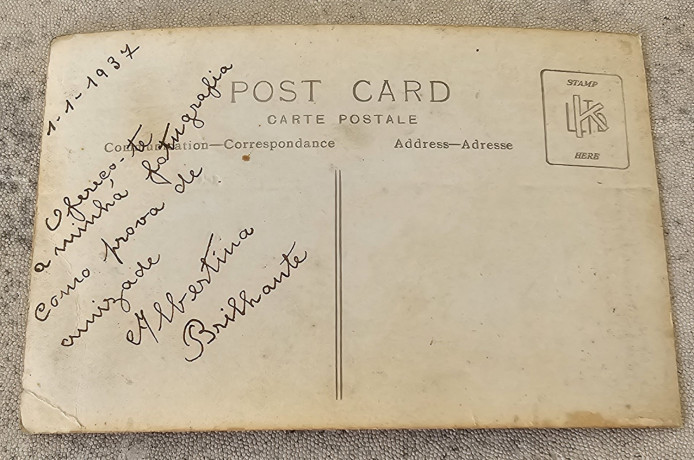 1-1-1937
POST CARD
CARTE POSTALE
Communication—Correspondance
Address—Adresse
STAMP
HERE
Ofereço-te
a minhá fotografia
como prova de
amizade
Albertina
Brilhante